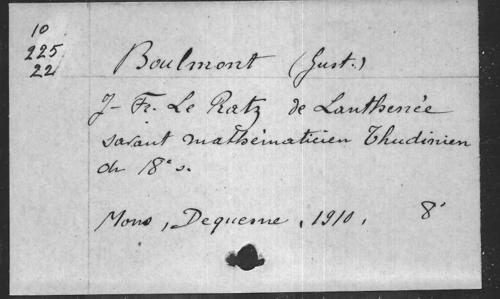 10
225
22
Boulmont (Gust.)
J-Fr. Le Ratz de Lanthenée
savant mathématicien Thudinien
du 18e s.
Mons, Dequesne, 1910, 8°